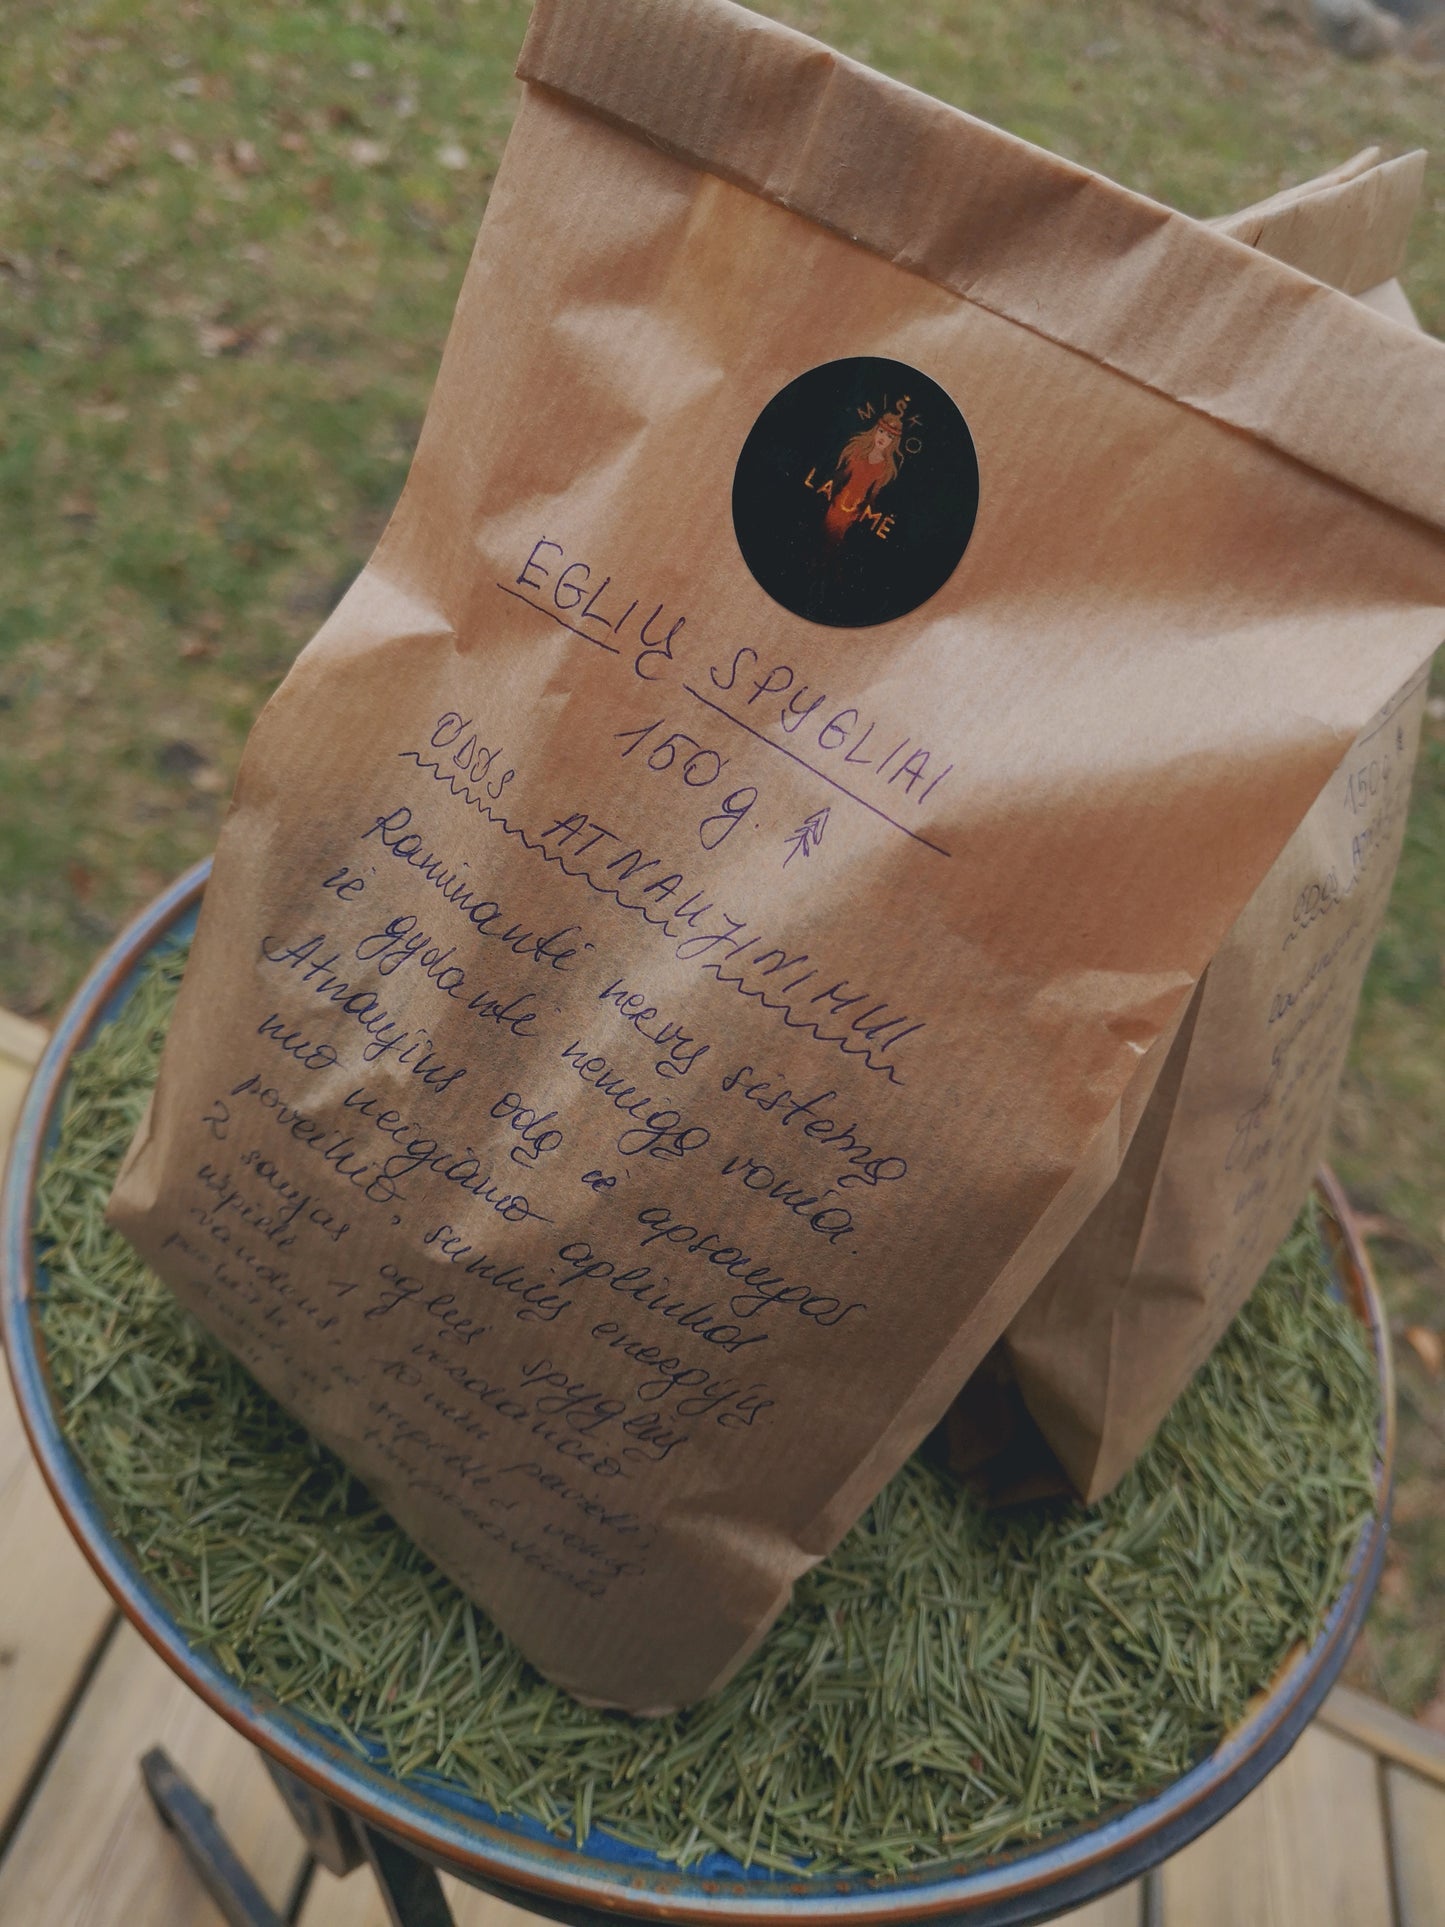 MIŠKO
LAUMĖ
EGLIŲ SPYGLIAI
150 g.
ODOS ATNAUJINIMUI
Raminanti nervų sistemą
ir gydanti nemigą vonia.
Atnaujins odą ir apsaugos
nuo neigiamo aplinkos
poveikio, sunkių energijų.
2 saujas eglių spyglių
užpilti 1 l verdančio
vandens. 10 min pavirti,
150g
ODOS